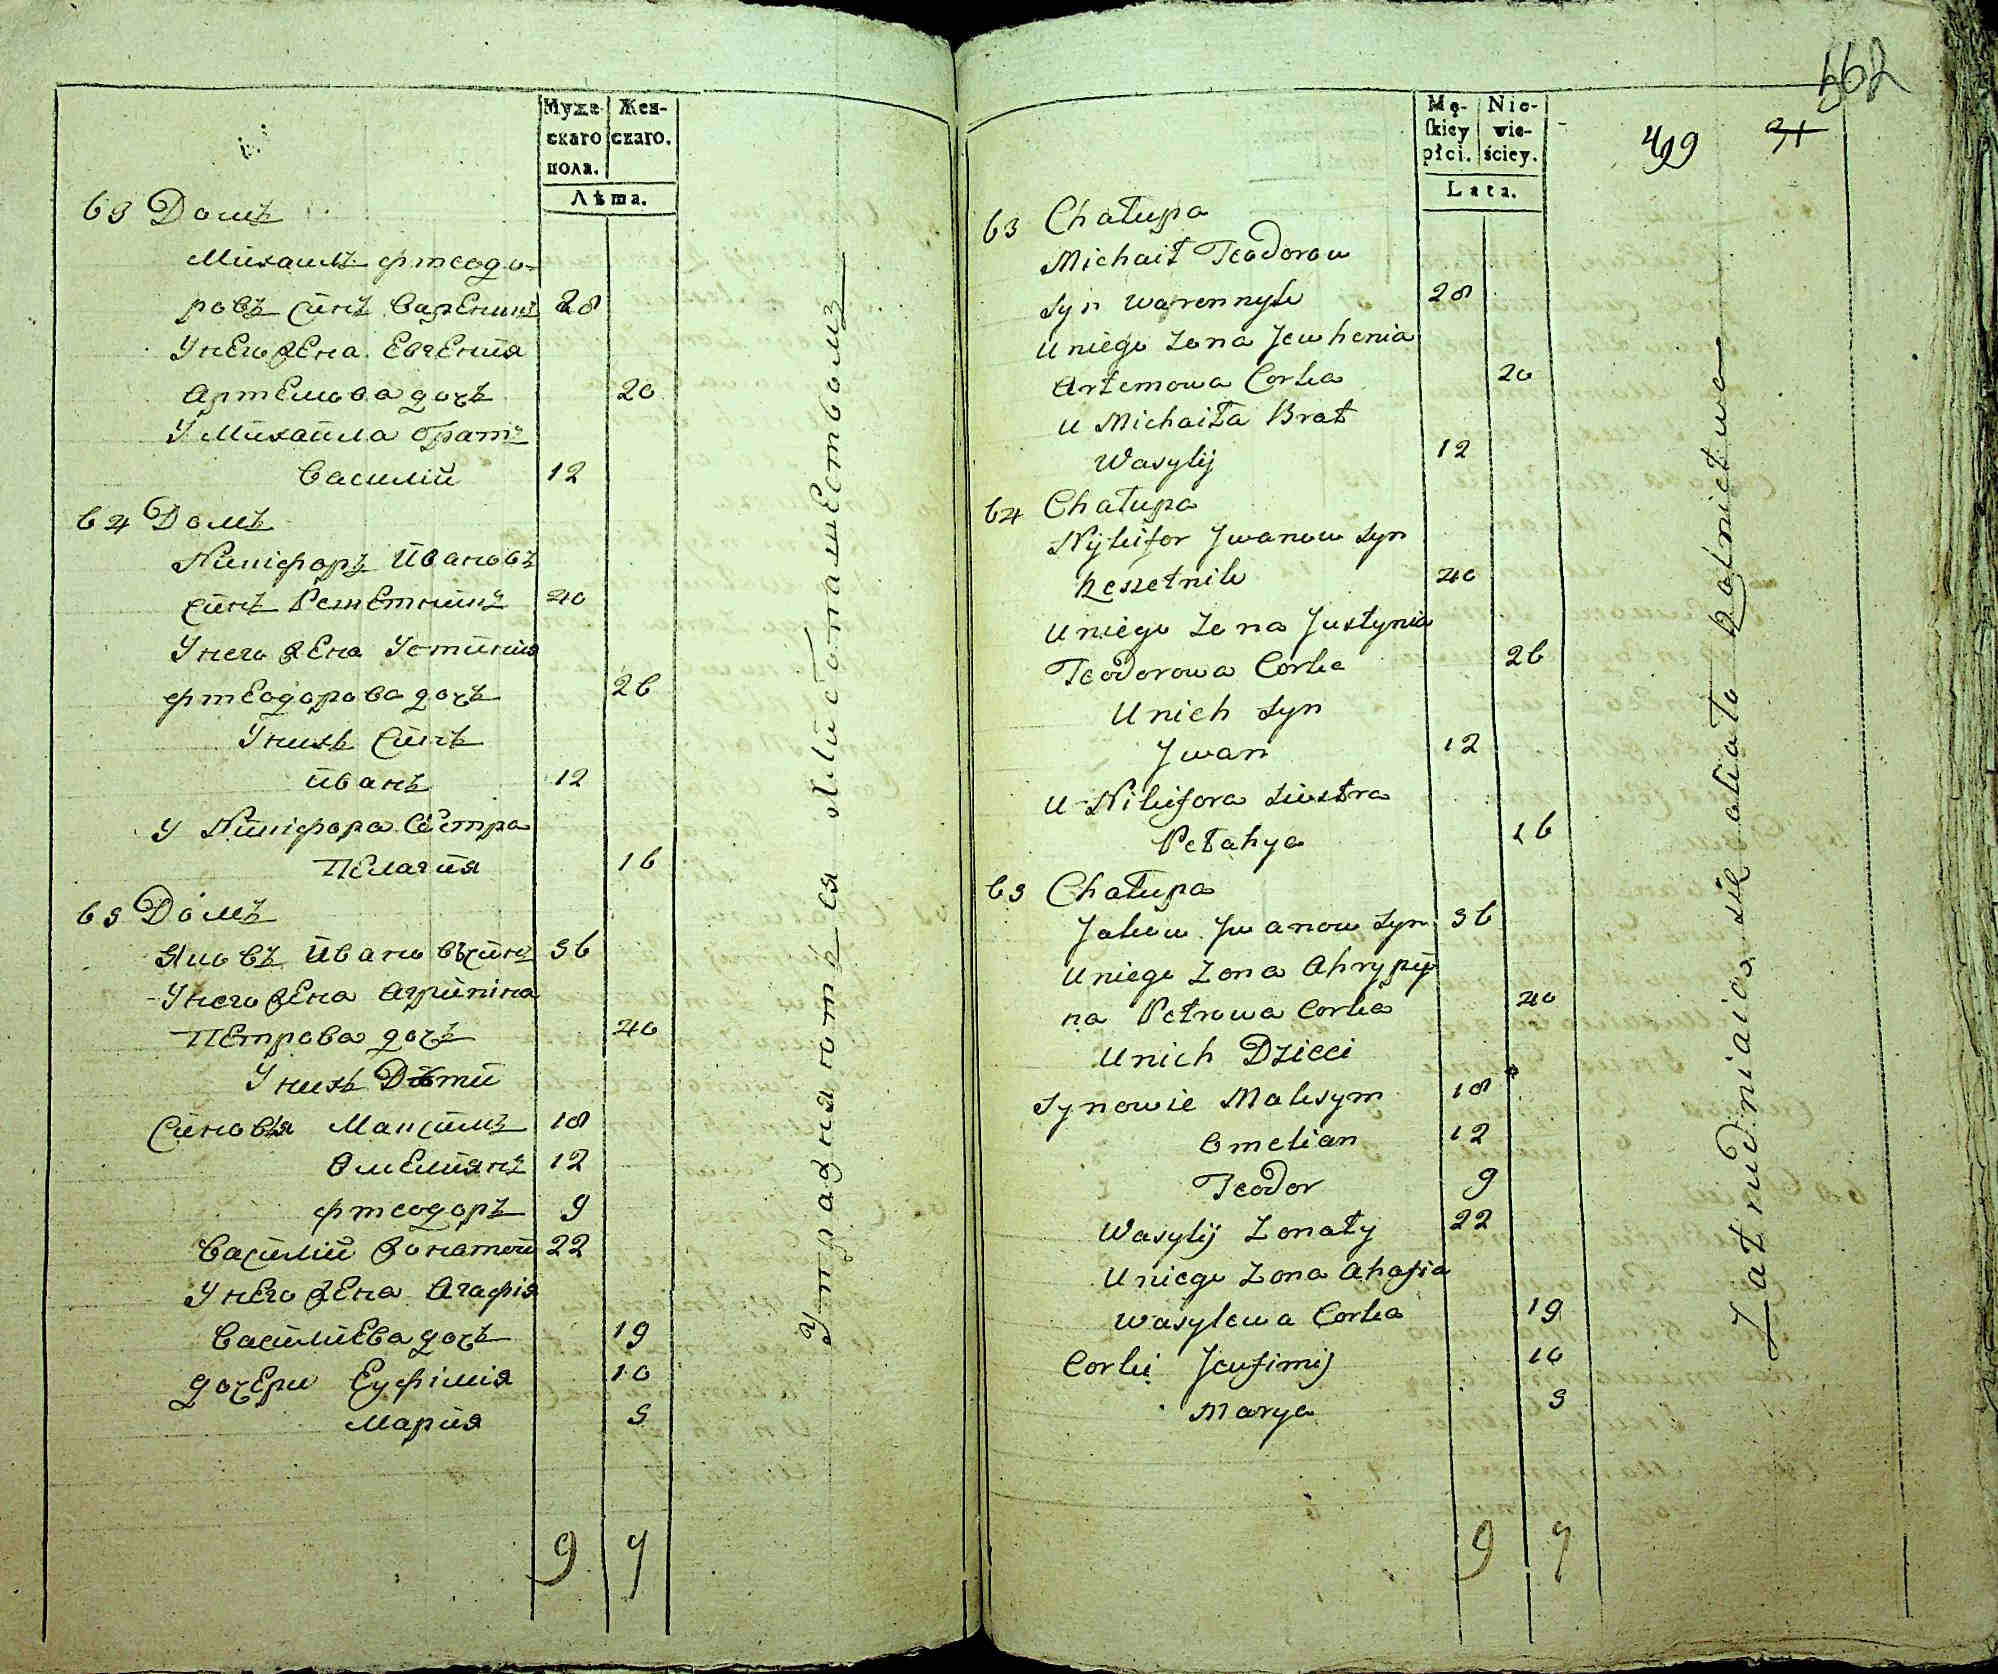 Муже-
скаго
пола.
Жен-
скаго.
Лѣта.
63 Домъ
Михаилъ фтеодо-
ровъ синъ Варениикъ 28
У него жена Евгения
Артемова дочъ 20
У Михаила братъ
Василий 12
64 Домъ
Никифоръ Ивановъ
синъ Решетникъ 40
У него жена Устиния
фтеодорова дочъ 26
У нихъ Синъ
Иванъ 12
У Никифора Сестра
Пелагия 16
65 Домъ
Яковъ Ивановъ синъ 56
У него жена Агрипина
Петрова дочъ 40
У нихъ Дѣти
Синовья Максимъ 18
Омелиянъ 12
фтеодоръ 9
Василий жонатий 22
У него жена Агафия
Василиева дочъ 19
дочери Еуфимия 10
Мария 5
9 7
Упражняются хлиботашеством
562
499 31
Mę-
ſkiey
płci.
Nie-
wie-
ściey.
Lata.
63 Chałupa
Michaił Teodorow
Syn Warennyk 28
U niego Zona Jewhenia
Artemowa Corka 20
U Michaiła Brat
Wasylij 12
64 Chałupa
Nykifor Jwanow Syn
Reszetnik 40
U niego Zona Justynia
Teodorowa Corka 26
U nich Syn
Jwan 12
U Nikifora Siostra
Pełahya 16
65 Chałupa
Jakow Jwanow Syn 56
U niego Zona Ahrypij-
na Petrowa Corka 40
U nich Dzieci
Synowie Maksym 18
Omelian 12
Teodor 9
Wasylij Zonaty 22
U niego Zona Ahafia
Wasylewa Corka 19
Corki Jeufimij 10
Marya 5
9 7
Zatrudniaią się około Rolnictwa